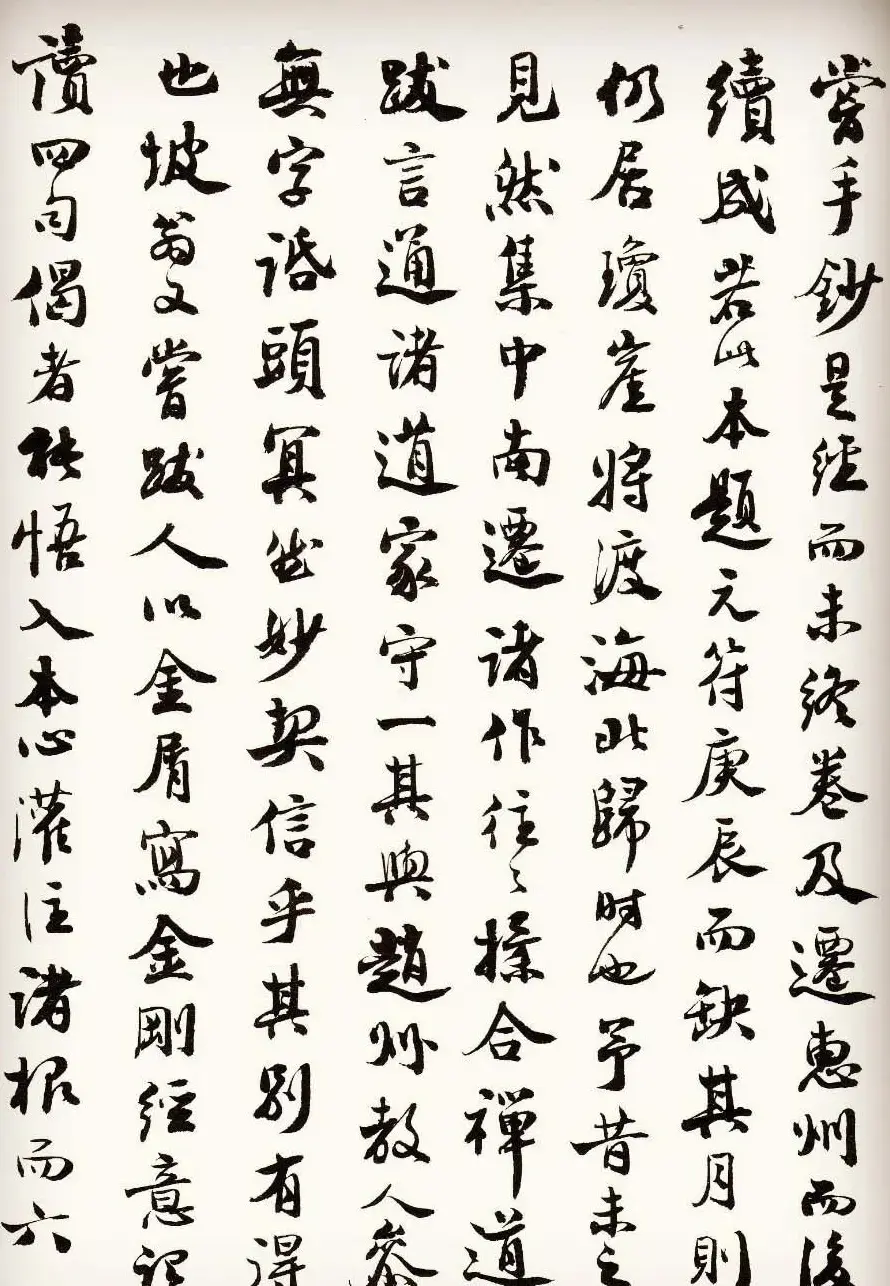 嘗手鈔是經而未終卷及遷惠州而後
續成若此本題元符庚辰而缺其月則
仍居瓊崖將渡海北歸時也予昔未之
見然集中南遷諸作往〻揉合禪道
跋言通諸道家守一其與趙州教人參
無字話頭冥然妙契信乎其別有得
也坡翁又嘗跋人以金屑寫金剛經意謂
讀四句偈者能悟入本心灌注諸根而六